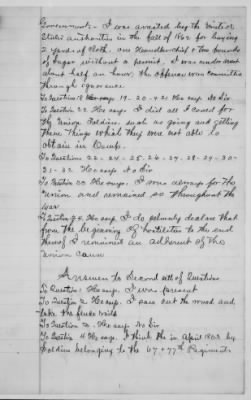 Government. I was arrested by the United
States authorities in the fall of 1862 for having
2 yards of cloth one Handkerchief & two pounds
of sugar without a permit. I was under arrest
about half an hour, the offence was committed
through ignorance
To Question 18 He says 19-20-21 He says No Sir
To Question 22 He says I did all I could for
the Union Soldiers such as going and getting
them things which they were not able to
obtain in Camp.
To Questions 23-24-25-26-27-28-29-30
31-32 He says No Sir
To Question 33 He says I was always for the
Union and remained so throughout the
war
To Question 34 He says I do solemnly declare that
from the beginning of hostilities to the end
thereof I remained an adherent of the
Union Cause
Answers to Second sett of Questions
To Question 1 He says I was present
To Question 2 He says I saw cut the wood and
take the fence rails
To Question 3 He says No Sir
To Question 4 He says I think the in April 1863 by
Soldiers belonging to the 67 & 77th Regiments